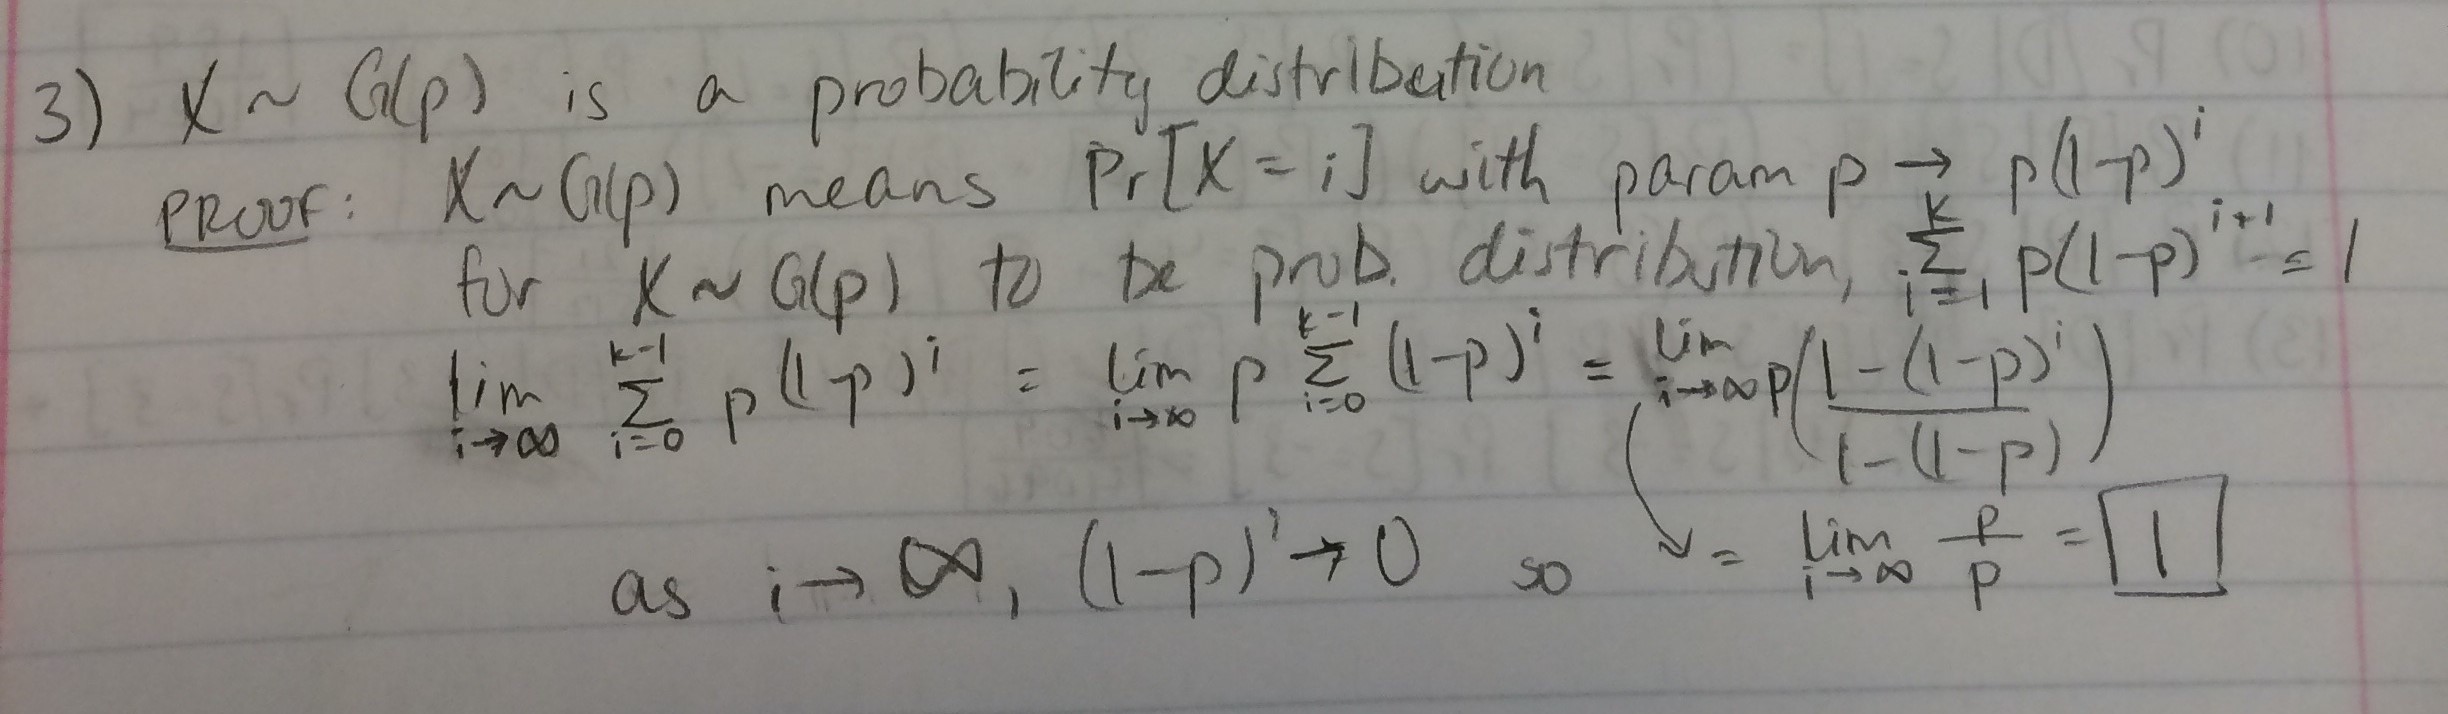 3) X ~ G(p) is a probability distribution
PROOF: X ~ G(p) means Pr[X = i] with param p → p(1-p)^i
for X ~ G(p) to be prob. distribution, ∑_{i=1}^{k} p(1-p)^{i+1} = 1
lim_{i→∞} ∑_{i=0}^{k-1} p(1-p)^i = lim_{i→∞} p ∑_{i=0}^{k-1} (1-p)^i = lim_{i→∞} p((1-(1-p)^i)/(1-(1-p)))
as i → ∞, (1-p)^i → 0 so ↘ = lim_{i→∞} p/p = 1